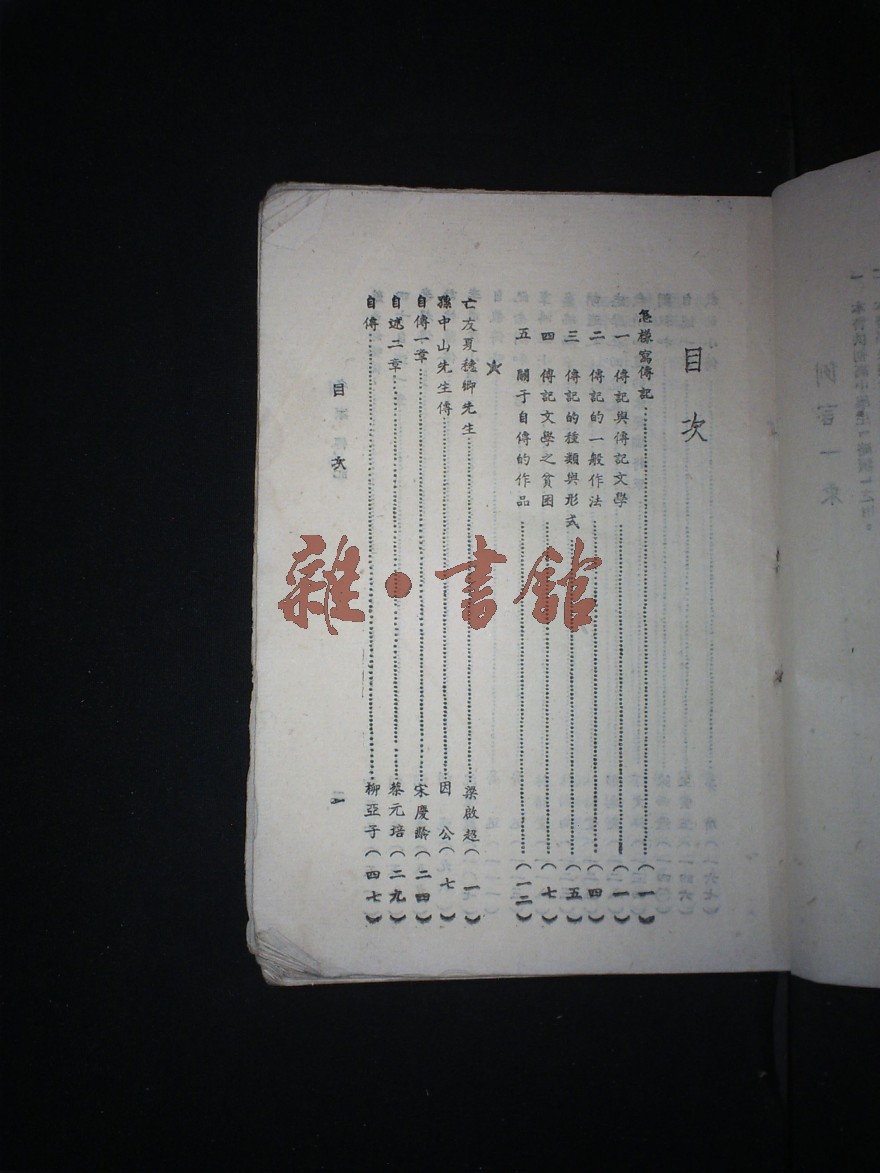 目次
怎樣寫傳記……(一)
一 傳記與傳記文學……(一)
二 傳記的一般作法……(四)
三 傳記的種類與形式……(五)
四 傳記文學之貧困……(七)
五 關于自傳的作品……(一二)
★
亡友夏穗卿先生……梁啟超(一)
孫中山先生傳……因 公(七)
自傳一章……宋慶齡(二四)
自述二章……蔡元培(二九)
自傳……柳亞子(四七)
目次
雜·書館